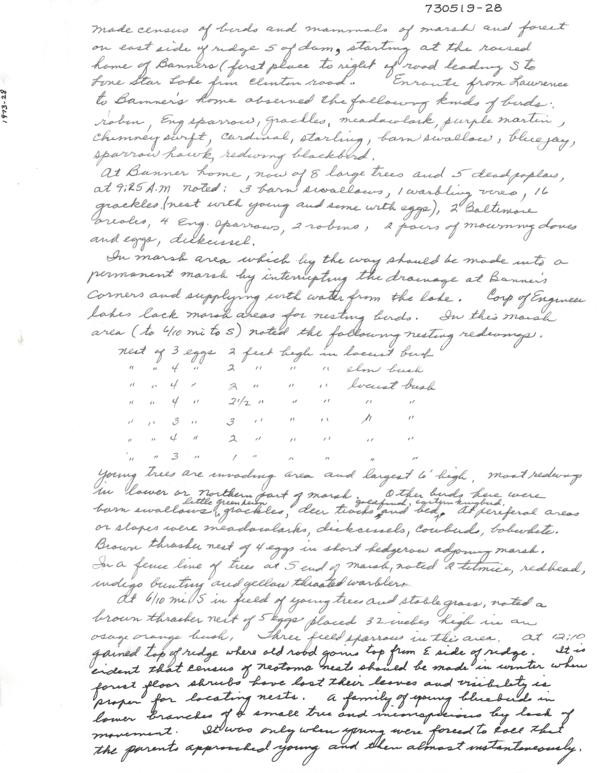 730519-28
made census of birds and mammals of marsh and forest
on east side of ridge S of dam, starting at the raised
home of Banners (first place to right of road leading S to
Lone Star Lake from Clinton road. Enroute from Lawrence
to Banner's home observed the following kinds of birds:
robin, Eng sparrow, grackles, meadowlark, purple martin,
chimney swift, cardinal, starling, barn swallow, bluejay,
sparrow hawk, redwing blackbird.
At Banner home, now of 8 large trees and 5 dead poplar,
at 9:25 A.M noted: 3 barn swallows, 1 warbling vireo, 16
grackles (nest with young and some with eggs), 2 Baltimore
orioles, 4 Eng. sparrows, 2 robins, 2 pairs of mourning doves
and eggs, dickcissel.
In marsh area which by the way should be made into a
permanent marsh by interrupting the drainage at Banner's
Corners and supplying with water from the lake. Corp of Engineer
lakes lack marsh areas for nesting birds. In this marsh
area (to 4/10 mi to S) noted the following nesting redwings.
nest of 3 eggs 2 feet high in locust bush
" " 4 " 2 " " " elm bush
" " 4 " 2 " " " locust bush
" " 4 " 2 1/2 " " " " "
" " 3 " 3 " " " " "
" " 4 " 2 " " " " "
" " 3 " 1 " " " " "
Young trees are invading area and largest 6' high, most redwings
in lower or northern part of marsh. Other birds here were
little green heron goldfinch, eastern kingbird
barn swallows, grackles, deer tracks and bed. At periferal areas
or slopes were meadowlarks, dickcissels, cowbirds, bobwhite.
Brown thrasher nest of 4 eggs in short hedgerow adjoining marsh.
In a fence line of trees at S end of marsh, noted 2 titmice, redhead,
indigo bunting and yellow throated warblers
At 6/10 mi S in field of young trees and stable grass, noted a
brown thrasher nest of 5 eggs placed 32 inches high in an
osage orange bush. Three field sparrows in this area. At 12:10
gained top of ridge where old road gains top from E side of ridge. It is
evident that census of neotoma nests should be made in winter when
forest floor shrubs have lost their leaves and visibility is
proper for locating nests. A family of young bluebird in
lower branches of a small tree and inconspicious by lack of
movement. It was only when young were forced to call that
the parents approached young and then almost instantaneously.
1973-28